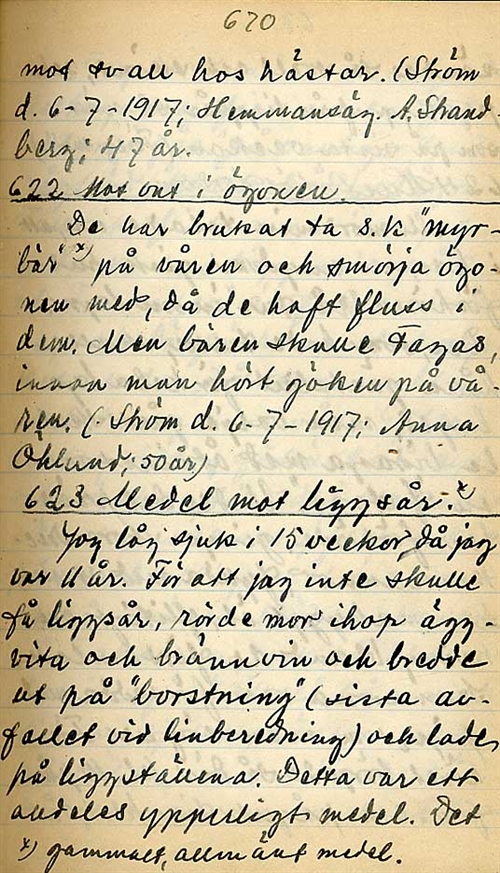 670
mot svall hos hästar. (Ström
d. 6-7-1917; Hemmansäg. A. Strand-
berg; 47 år.
622 Mot ont i ögonen.
De har brukat ta s.k "myr-
bär" x) på våren och smörja ögo-
nen med, då de haft fluss i
dem. Men bären skulle tagas,
innan man hört göken på vå-
ren. (Ström d. 6-7-1917; Anna
Öhlund; 50 år)
623 Medel mot liggsår. x)
Jag låg sjuk i 15 veckor, då jag
var 11 år. För att jag inte skulle
få liggsår, rörde mor ihop ägg-
vita och brännvin och bredde
ut på "borstning" (sista av-
fallet vid linberedning) och lades
på liggställena. Detta var ett
alldeles ypperligt medel. Det
x) gammalt, allmänt medel.